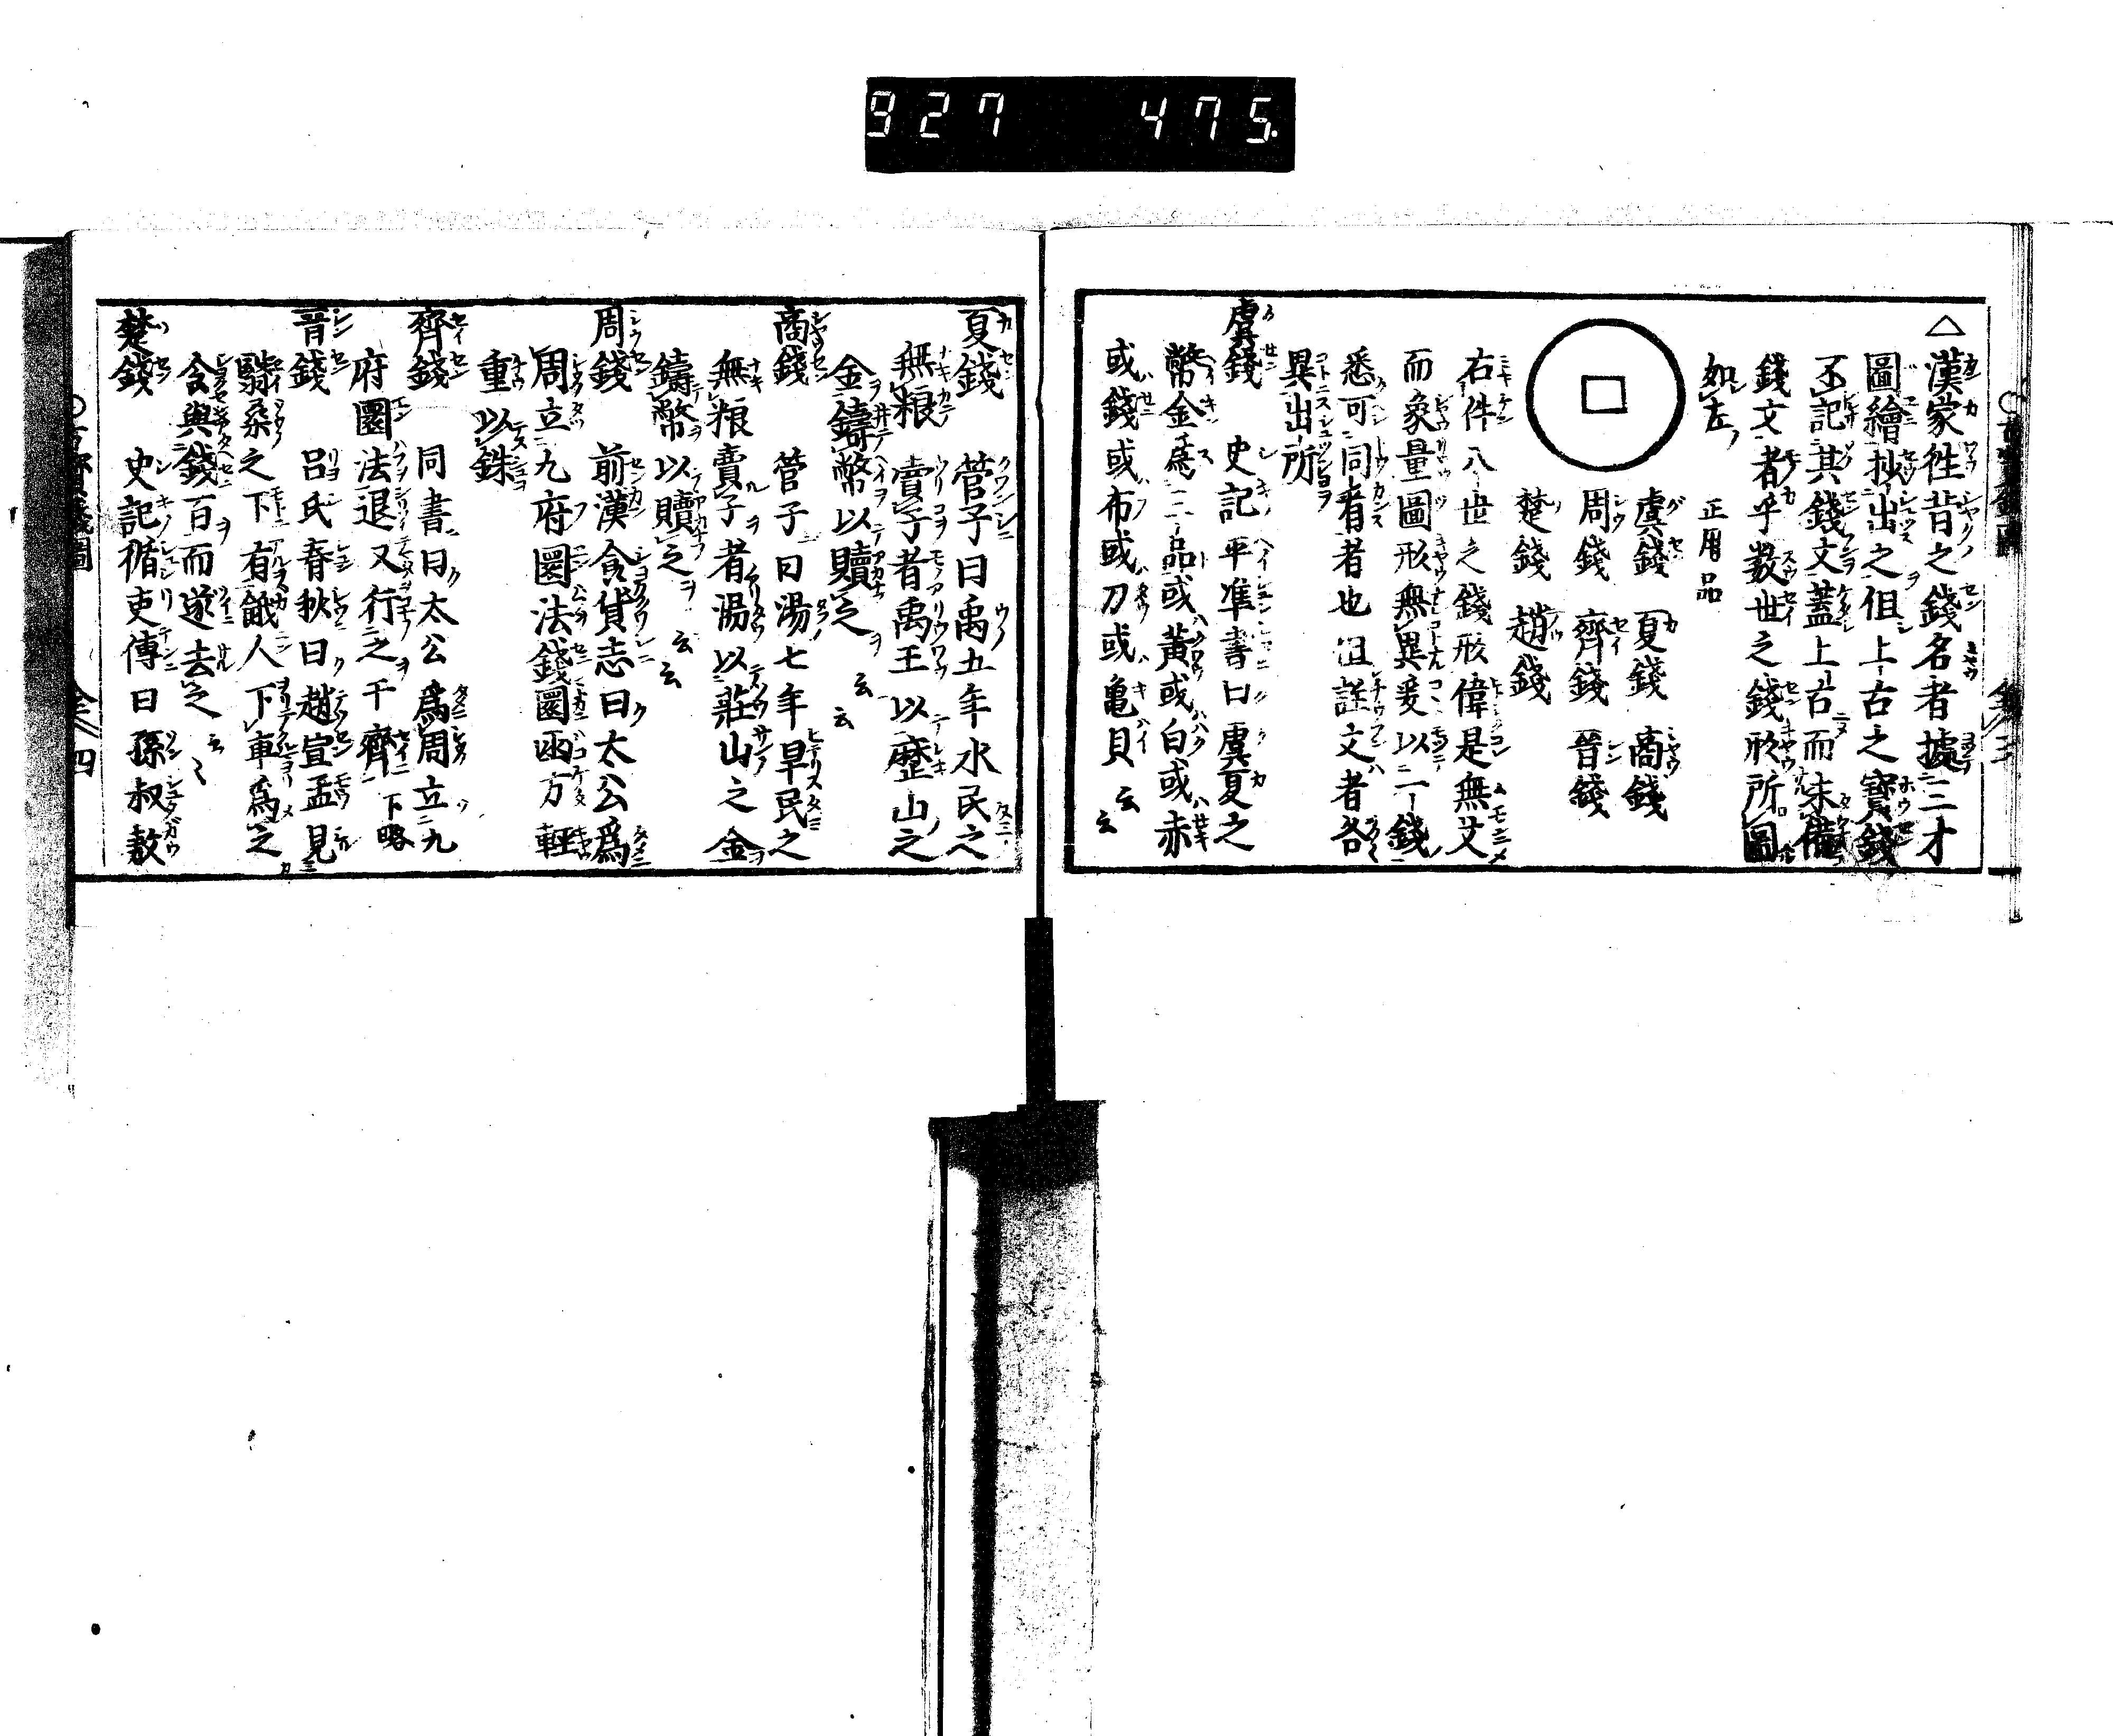 927 475.
△漢家徃昔之錢名者據三才
圖繪抄出之但上古之寶錢
不記其錢文蓋上古而未備
錢文者乎數世之錢形所圖
如左
正用品
虞錢 夏錢 商錢
周錢 齊錢 晉錢
楚錢 趙錢
右件八世之錢形偉是無文
而象量圖形無異爰以一錢
悉可同者者也但註文者各
異出所
虞錢 史記平準書曰虞夏之
幣金爲三品或黃或白或赤
或錢或布或刀或亀貝云云
夏錢 管子曰禹五年水民之
無粮賣子者禹王以歷山之
金鑄幣以贖之云云
商錢 管子曰湯七年旱民之
無粮賣子者湯以莊山之金
鑄幣以贖之云云
周錢 前漢食貨志曰太公爲
周立九府圜法錢圜函方輕
重以銖
齊錢 同書曰太公爲周立九
府圜法退又行之于齊下略
晉錢 呂氏春秋曰趙宣孟見
翳桑之下有餓人下車爲之
食與錢百而遂去之云〻
楚錢 史記循吏傳曰孫叔敖
四